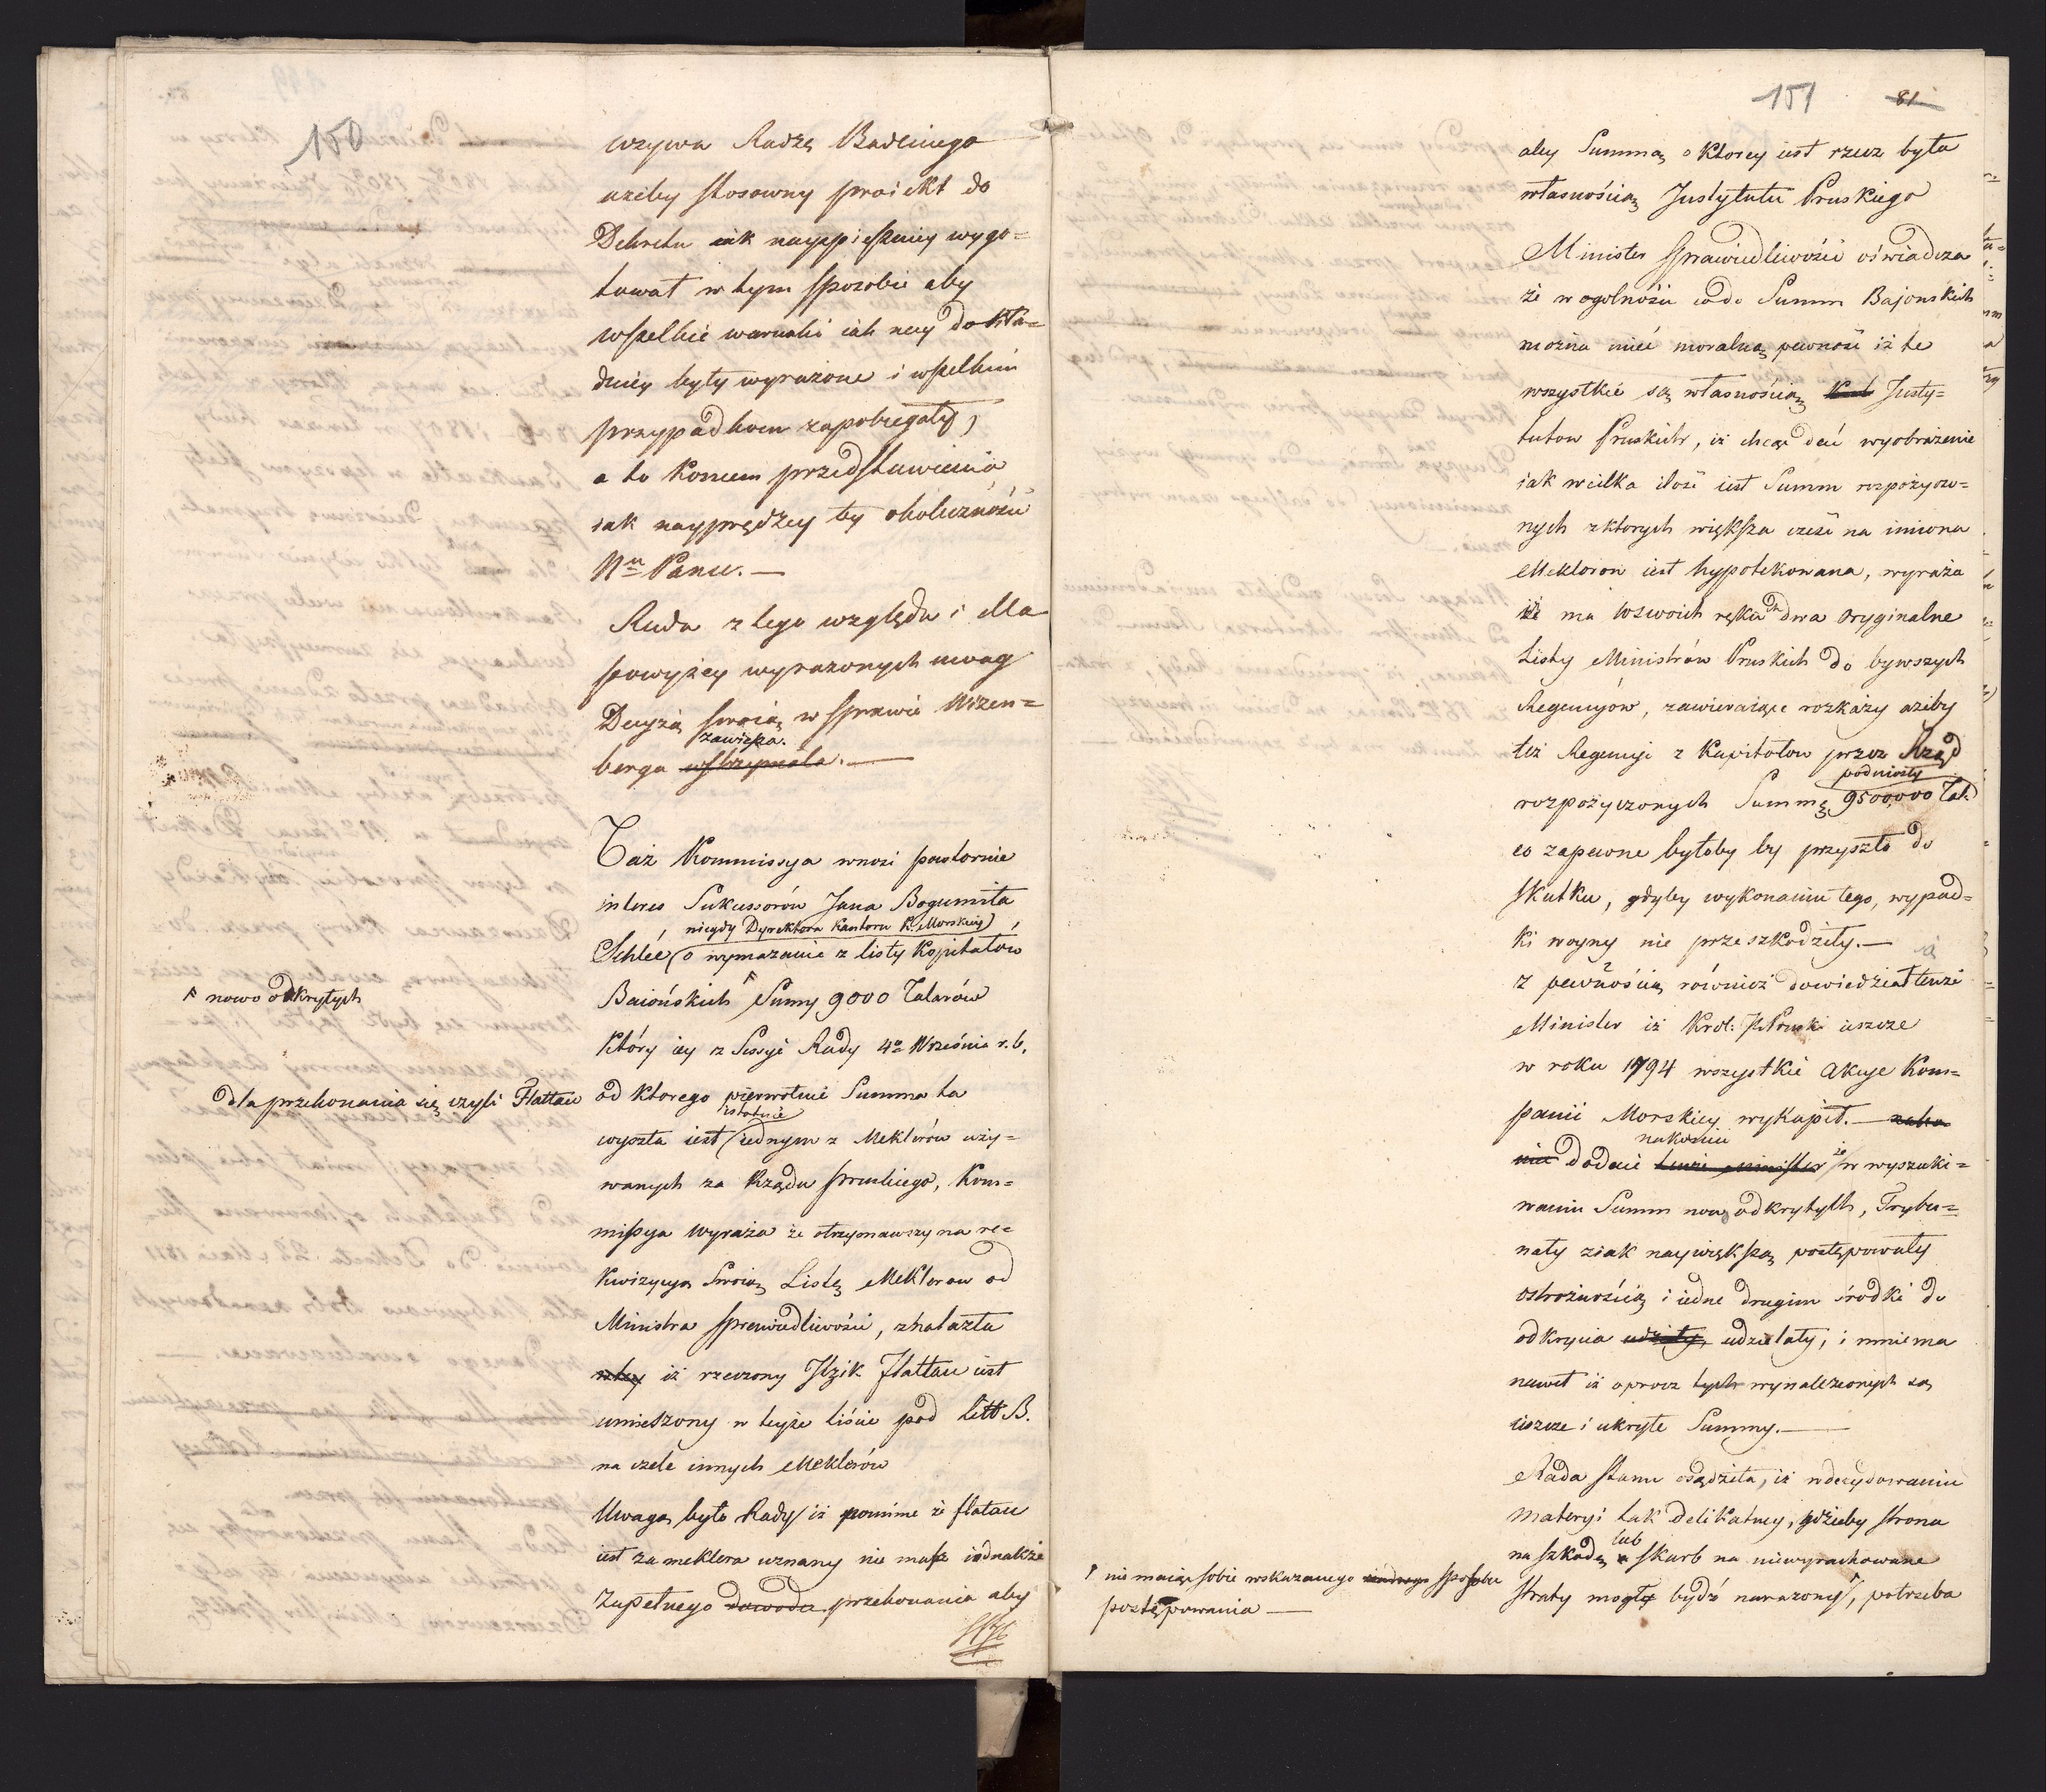 150
wzywa Radzę Badeniego
ażeby stosowny proiekt do
Dekretu iak nayspieszniey wygo=
tował w tym sposobie aby
wszelkie warunki iak nay dokła=
dniey były wyrażone i wszelkim
przypadkom zapobiegały,
a to koncem przedstawienia
iak nayprędzey tey okoliczności
Nu Panu. —
Rada z tego względu i dla
powyżey wyrażonych uwag
Decyzią swoią w sprawie Wizen=
zawiesza.
berga wstrzymała. —
Taż Kommissya wnosi powtornie
interes Sukcessorów Jana Bogumiła
niegdy Dyrektora Kantoru K. Morskiey
Schleé o wymazanie z listy Kapitałów
^ nowo odkrytych
Baiońskich ^ Sumy 9000 Talarów
Który iey z Sessyi Rady 4o Września r. b.
dla przekonania się czyli Flattau
od ktorego pierwotnie Summa ta
istotnie
wyszła iest iednym z Meklerów uży=
wanych za Rządu pruskiego, Kom=
missya wyraża że otrzymawszy na re=
kwizycyą Swoią Listę Meklerow od
Ministra sprawiedliwości, znalazła
iż rzeczony Itzik Flattau iest
umieszony w teyże liście pod Litt B.
na czele innych Meklerów
Uwagą było Rady iż pomimo że flatau
iest za meklera uznany nie masz iednakże
zupełnego dowodu przekonania aby
151 81
aby Summa, o ktorey iest rzecz była
własnością Instytutu Pruskiego
Minister Sprawiedliwości oświadcza
że w ogolności co do Summ Bajonskich
można mieć moralną pewność iż te
wszystkie są własnością Insty=
tutow Pruskich, iż chcąc dać wyobrażenie
iak wielka ilość iest Summ rozpożyczo=
nych z ktorych większa cześć na imiona
Meklerow iest hypotekowana, wyraża
iż ma w swoich ręku dwa oryginalne
Listy Ministrów Pruskich do bywszych
Regencyów, zawieraiące rozkazy ażeby
też Regencye z Kapitałow przez Rząd
podniosły
rozpożyczonych Summę 9500,000 Tal.
co zapewne byłoby by przyszło do
skutku, gdyby wykonaniu tego, wypad=
ki woyny nie przeszkodziły. —
z pewnością również dowiedział się tenże
Minister iż Krol: Pruski ieszcze
w roku 1794 wszystkie Akcye Kom=
panii Morskiey wykupił. —
nakoniec
nie dodaie tenże Minister że w wyszuki=
waniu Summ nowo odkrytych, Trybu=
nały z iak naywiększą postępowały
ostrożnością i iedne drugim środki do
odkrycia udzieły udzielały, i mniema
nawet iż oprocz tych wynalezionych są
ieszcze i ukryte Summy. —
Rada Stanu osądziła, iż w decydowaniu
materyi tak delikatney, gdzieby strona
lub
na szkodę a skarb na niewyrachowane
^ nie maiąc sobie wskazanego sposobu
postępowania —
straty mogły bydź narażony ^, potrzeba